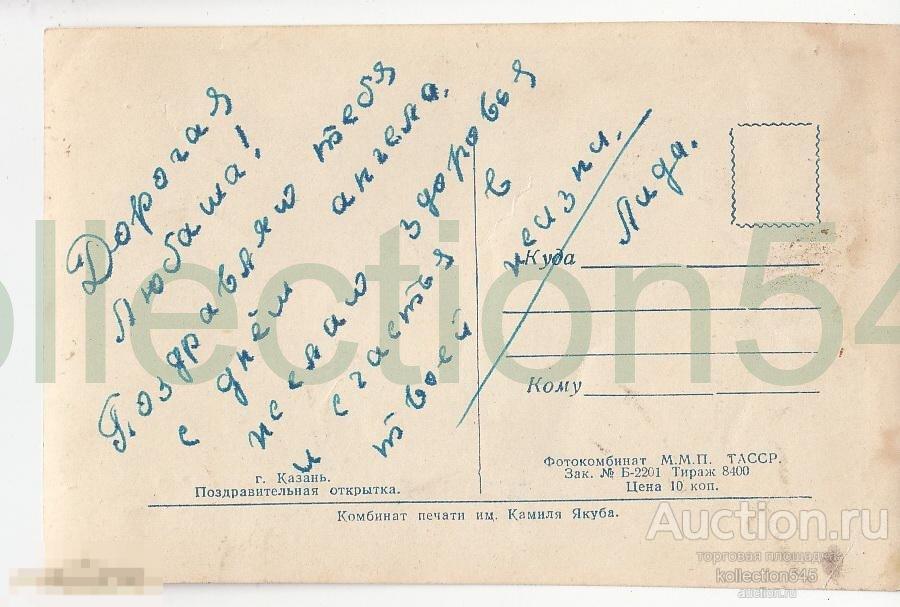 Дорогая
Любаша!
Поздравляю тебя
с днём ангела.
желаю здоровья
и счастья в
твоей жизни.
Лида.
Куда
Кому
г. Казань.
Поздравительная открытка.
Фотокомбинат М.М.П. ТАССР.
Зак. № Б-2201 Тираж 8400
Цена 10 коп.
Комбинат печати им. Камиля Якуба.
collection545
Auction.ru
торговая площадка
kollection545
auction.ru